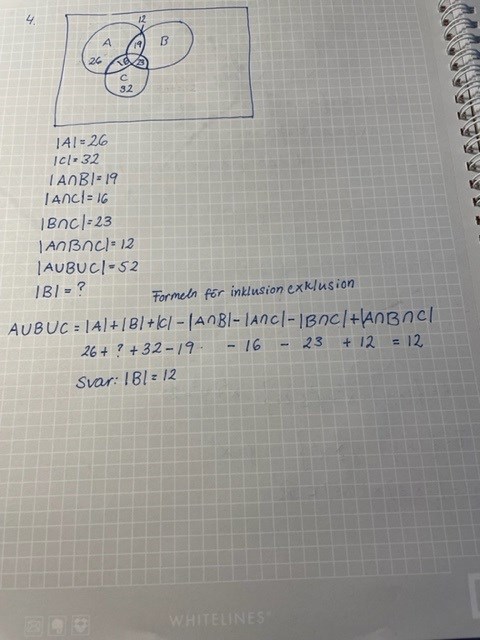 4.
12
A
19
B
26
16
23
C
32
|A|=26
|C|=32
|A∩B|=19
|A∩C|=16
|B∩C|=23
|A∩B∩C|=12
|AUBUC|=52
|B|=?
Formeln för inklusion exklusion
AUBUC=|A|+|B|+|C|-|A∩B|-|A∩C|-|B∩C|+|A∩B∩C|
26+ ? +32-19 - 16 - 23 + 12 = 12
Svar: |B|=12
WHITELINES®